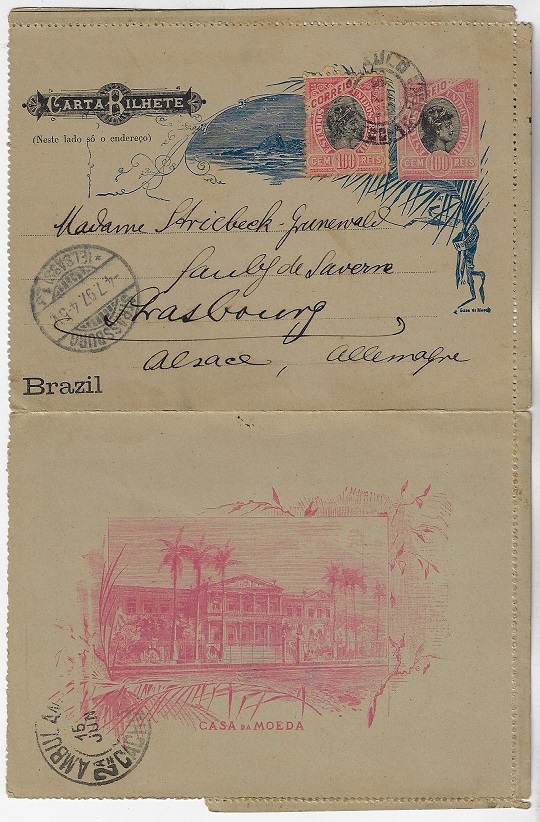 CARTA BILHETE
(Neste lado só o endereço)
CORREIO
CEM 100 REIS
CEM 100 REIS
Madame Striebeck-Grunewald
Saverne
Strasbourg
Alsace, Allemagne
STRASSBURG
4.7.97.
Casa da Moeda
Brazil
CASA DA MOEDA
AMBUL
15
JUN
2ª